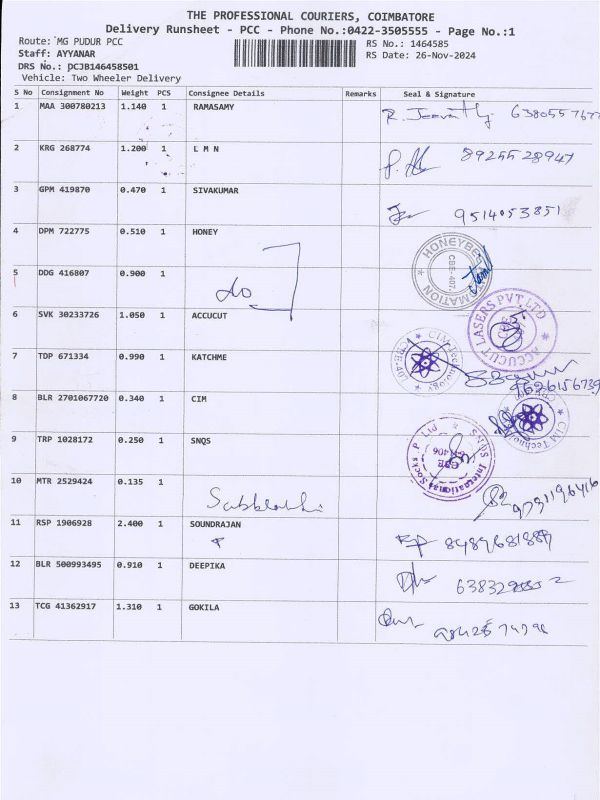 THE PROFESSIONAL COURIERS, COIMBATORE
Delivery Runsheet - PCC - Phone No.:0422-3505555 - Page No.:1
Route: MG PUDUR PCC
RS No.: 1464585
Staff: AYYANAR
RS Date: 26-Nov-2024
DRS No.: PCJB146458501
Vehicle: Two Wheeler Delivery
S No Consignment No Weight PCS Consignee Details Remarks Seal & Signature
1 MAA 300780213 1.140 1 RAMASAMY
2 KRG 268774 1.200 1 L M N 8925528947
3 GPM 419870 0.470 1 SIVAKUMAR 9514053851
4 DPM 722775 0.510 1 HONEY
5 DDG 416807 0.900 1 do
6 SVK 30233726 1.050 1 ACCUCUT ACCUCUT LASERS PVT LTD
7 TDP 671334 0.990 1 KATCHME CIM Technology 9626156739
8 BLR 2701067720 0.340 1 CIM
9 TRP 1028172 0.250 1 SNQS SNQS International Socks P. Ltd
10 MTR 2529424 0.135 1
11 RSP 1906928 2.400 1 SOUNDRAJAN
12 BLR 500993495 0.910 1 DEEPIKA
13 TCG 41362917 1.310 1 GOKILA